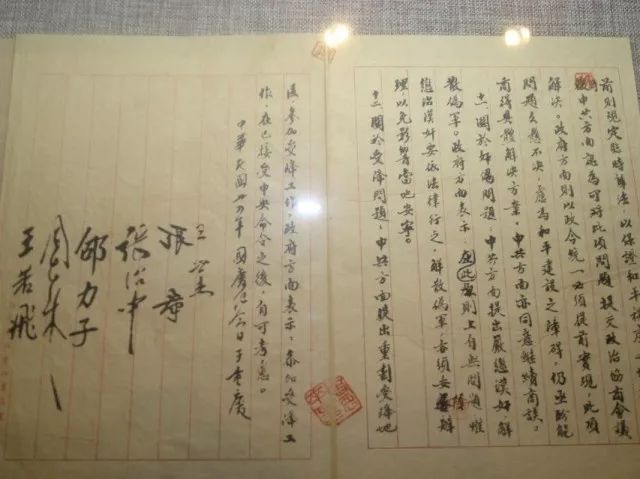 前則規定臨時辦法,以保證和平秩序
中共方面認為可將此項問題提交政治協商會議
解決。政府方面則以政令統一必須提前實現,此項
問題久懸不決,慮為和平建設之障礙,仍亟盼能
商得具體解決方案。中共方面亦同意繼續商談。
十一、關於奸偽問題,中共方面提出嚴懲漢奸解
散偽軍。政府方面表示:此在原則上自無問題,惟
懲治漢奸要依法律行之,解散偽軍,亦須妥慎辦
理,以免影響當地安寧。
十二、關於受降問題,中共方面提出重劃受降地
區,參加受降工作。政府方面表示:參加受降工
作,在已接受中央命令之後,自可考慮。
中華民國卅四年國慶紀念日于重慶
王世杰
張群
張治中
邵力子
周恩來
王若飛